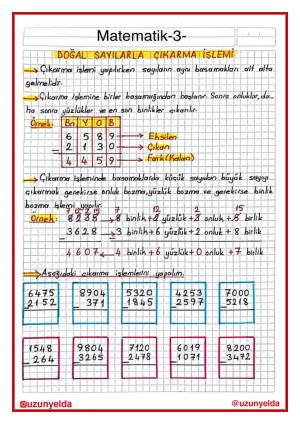 Matematik-3-
DOĞAL SAYILARLA ÇIKARMA İŞLEMİ
Çıkarma işlemi yapılırken sayıların aynı basamakları alt alta
gelmelidir.
Çıkarma işlemine birler basamağından başlanır. Sonra onluklar, da-
ha sonra yüzlükler ve en son binlikler çıkarılır.
Örnek: Bn Y O B
6 5 8 9 → Eksilen
- 2 1 3 0 → Çıkan
4 4 5 9 → Fark(Kalan)
Çıkarma işleminde basamaklarda küçük sayıdan büyük sayıyı
çıkarmak gerekirse onluk bozma, yüzlük bozma ve gerekirse binlik
bozma işlemi yapılır.
Örnek: 8235 → 8 binlik + 2 yüzlük + 3 onluk + 5 birlik
- 3628 → 3 binlik + 6 yüzlük + 2 onluk + 8 birlik
4607 → 4 binlik + 6 yüzlük + 0 onluk + 7 birlik
Aşağıdaki çıkarma işlemlerini yapalım.
6475 8904 5320 4253 7000
- 2152 - 371 - 1845 - 2597 - 5218
1548 9804 7120 6019 8200
- 264 - 3265 - 2478 - 1071 - 3472
@uzunyelda @uzunyelda